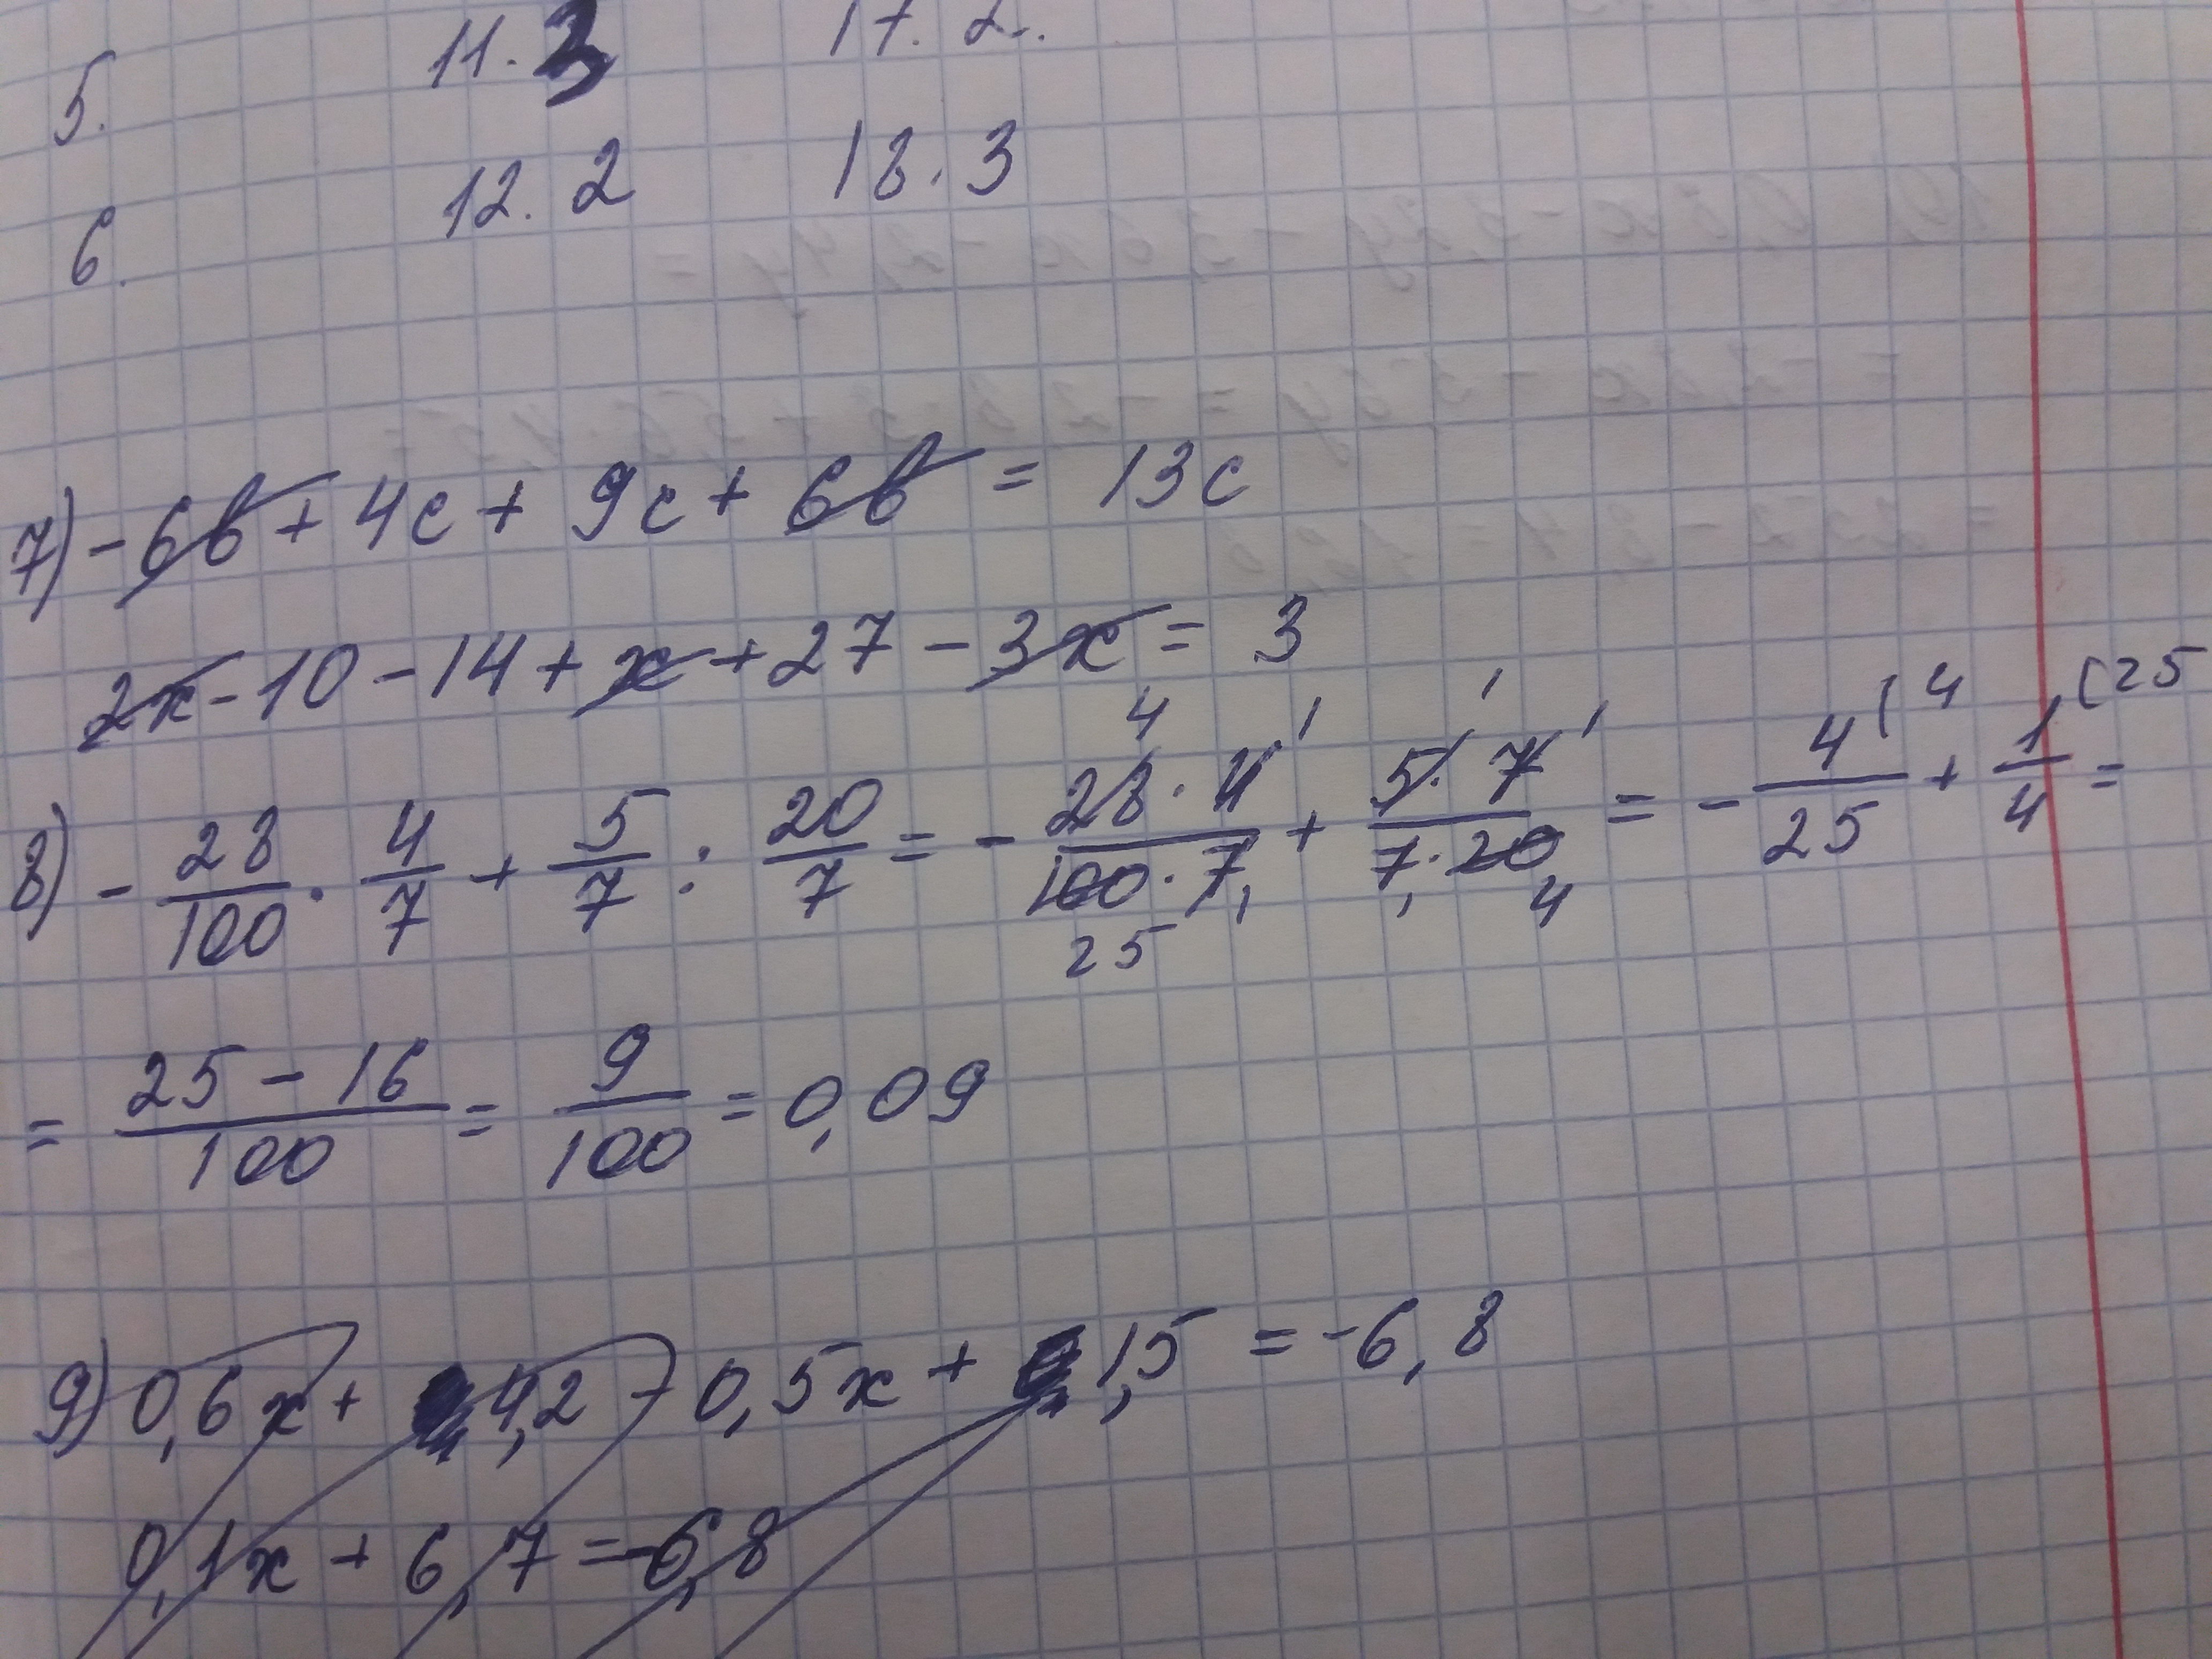 5. 11. 3 17. 2.
6. 12. 2 18. 3
7) -6в + 4с + 9с + 6в = 13с
2x - 10 - 14 + x + 27 - 3x = 3
8) - 28/100 · 4/7 + 5/7 : 20/7 = - 28·4/100·7 + 5·7/7·20 = - 4/25 + 1/4 =
= 25 - 16/100 = 9/100 = 0,09
9) 0,6x + 4,2 - 0,5x + 1,5 = -6,8
0,1x + 6,7 = -6,8